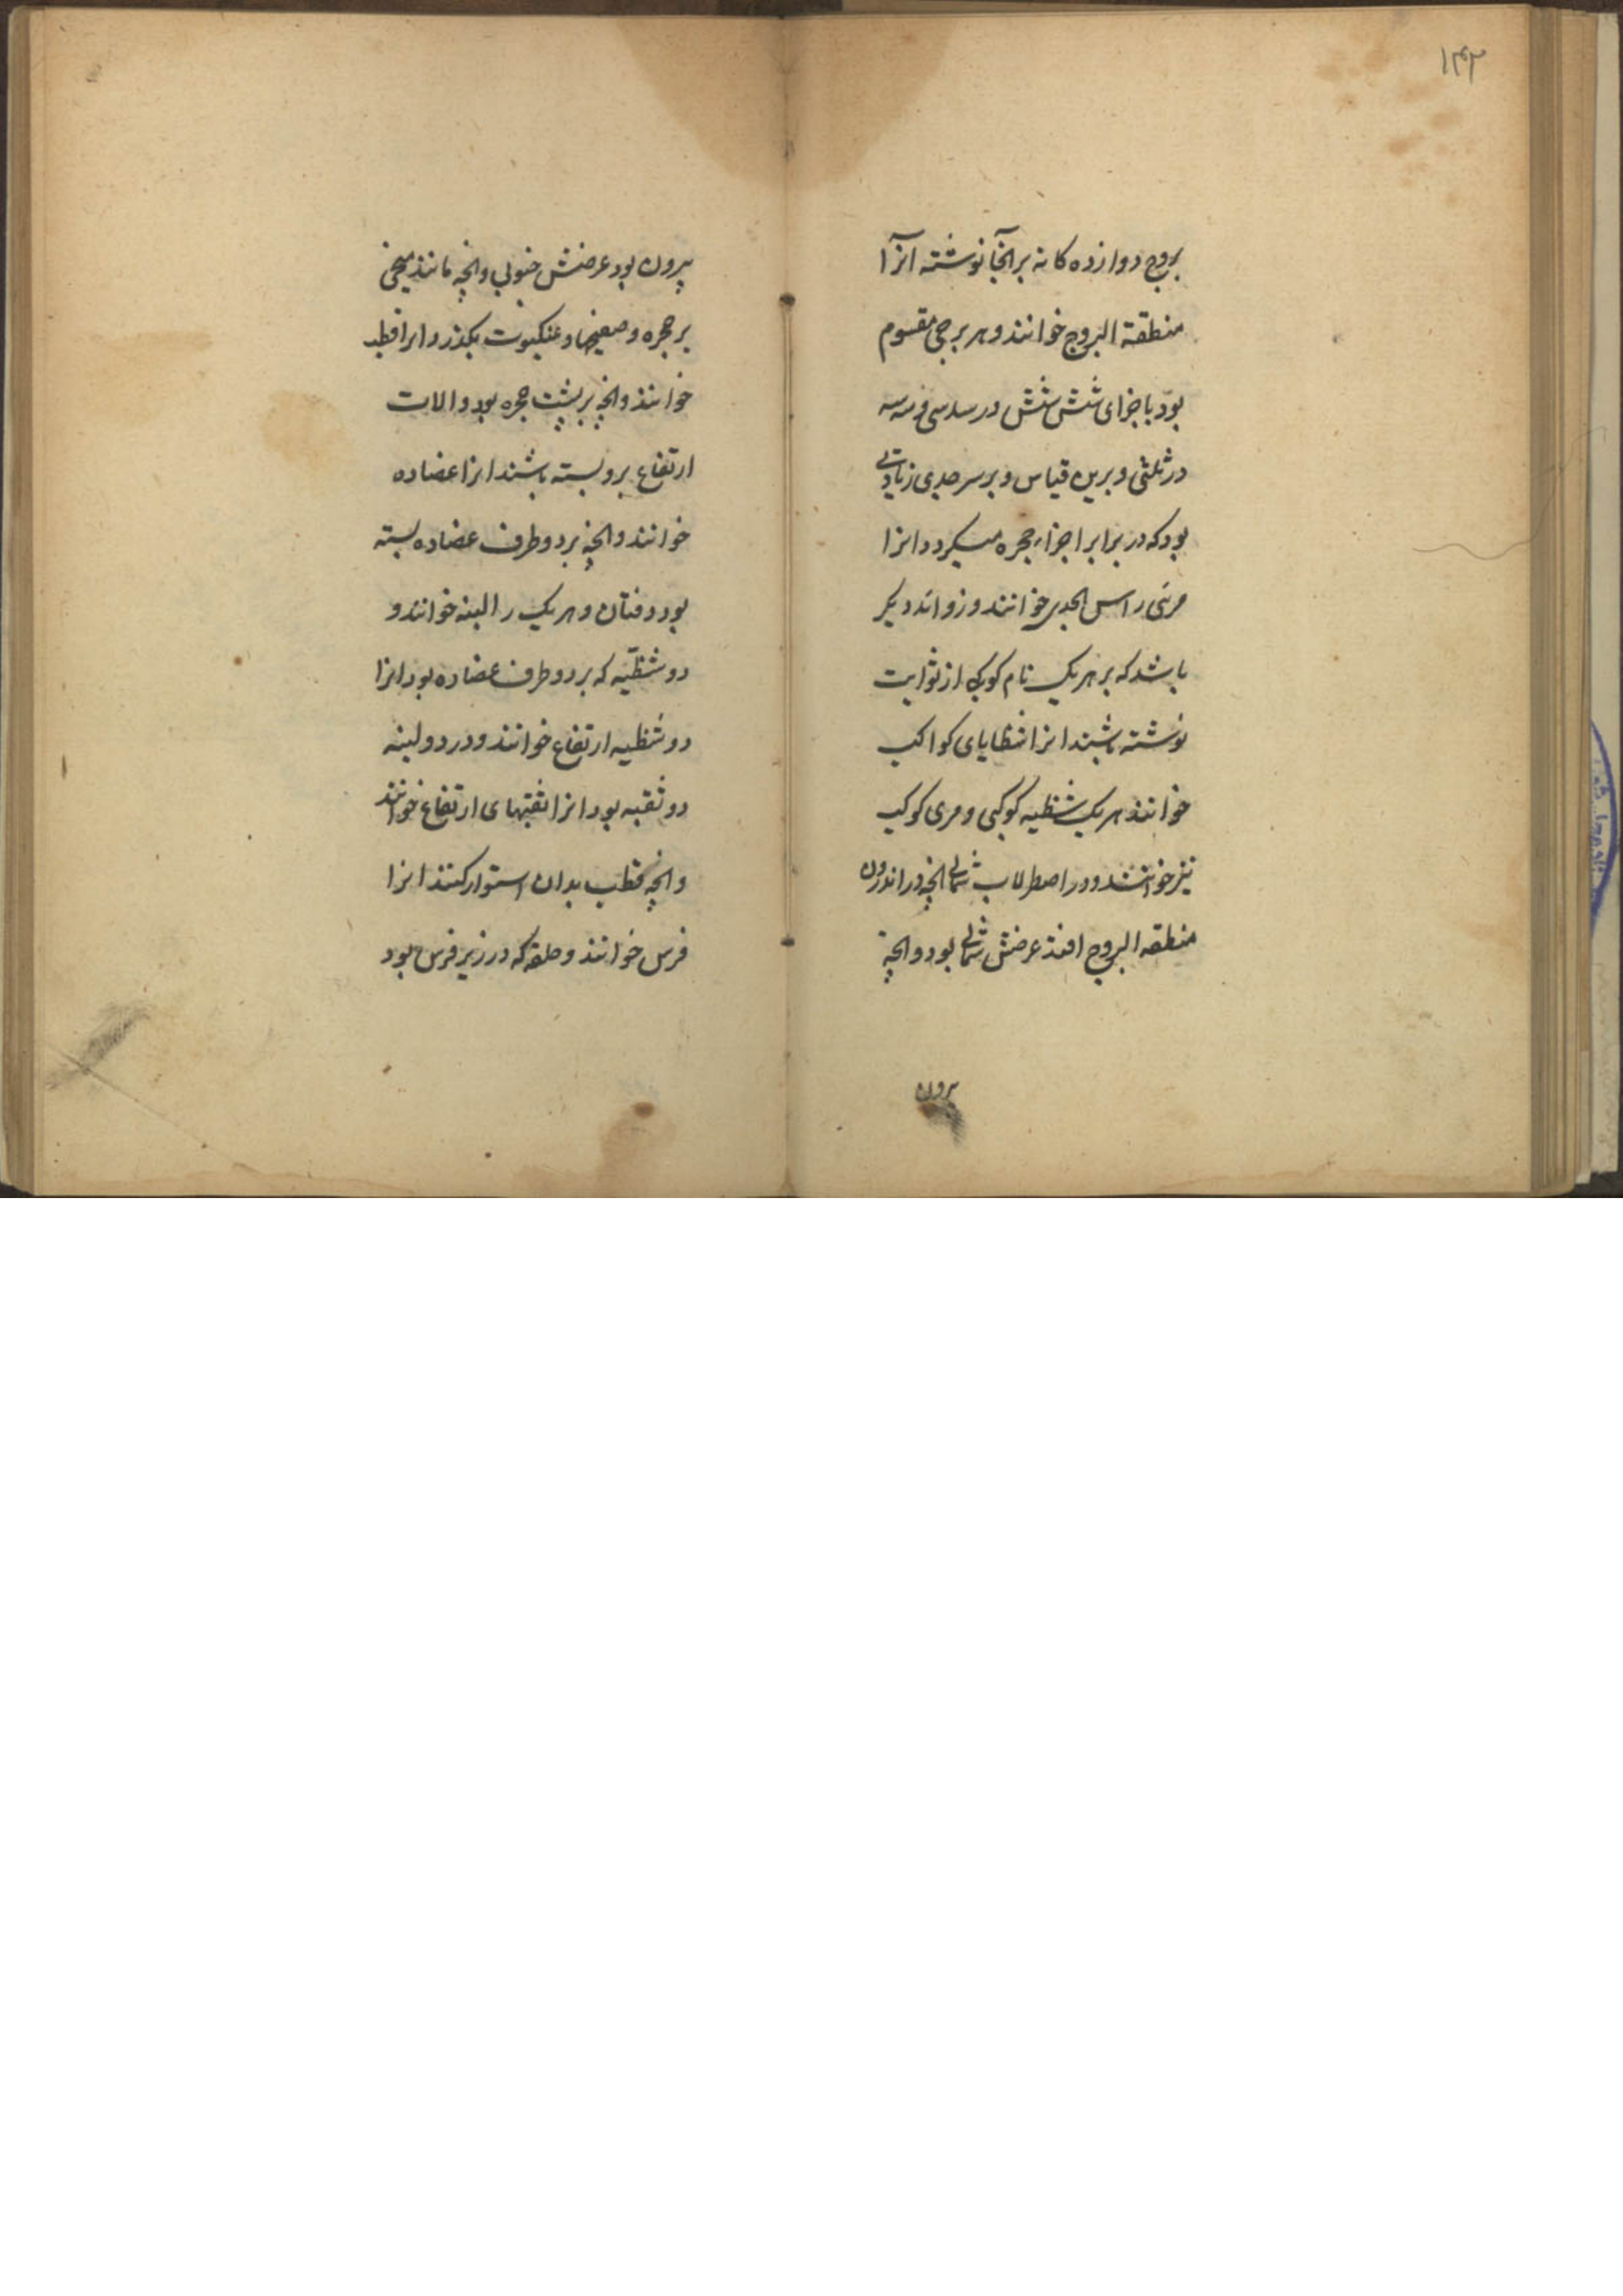 ۱۴۲
بروج دوازده کانه بر انجا نوشته آنرا
منطقة البروج خوانند و هر برجی مقسوم
بود باجزای شش شش در سدسی و سه سه
در ثلثی و برین قیاس و بر سر جدی زیادتی
بود که در برابر اجزاء حجره میکردد انرا
مرئی راس الجدی خوانند و زوائد دیکر
باشد که بر هر یک نام کوکبی از ثوابت
نوشته باشند انرا شظایای کواکب
خوانند هر یک شظیه کوکبی و مری کوکب
نیز خوانند و در اصطرلاب شمالی انچه در اندرون
منطقه البروج افتد عرضش شمالی بود و انچه
بیرون
بیرون بود عرضش جنوبی و انچه مانند میخی
بر حجره و صفیحها و عنکبوت بکذرد انرا قطب
خوانند و انچه بر پشت حجره بود و الات
ارتفاع برو بسته باشند انرا عضاده
خوانند و انچه بر دو طرف عضاده بسته
بود دفتان و هر یک را لبنه خوانند و
دو شظیّه که بر دو طرف عضاده بود انرا
دو شظیه ارتفاع خوانند و در دو لبنه
دو ثقبه بود انرا ثقبهای ارتفاع خوانند
و انچه قطب بدان استوار کنند انرا
فرس خوانند و حلقه که در زیر فرس بود